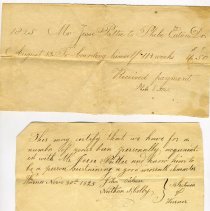 1825 Mr Jesse Potter to Phila Eaton Dr
August 13 To boarding himself 11 1/2 weeks
Received payment
This may certify that we have for a
number of years been personally acquaint-
ed with Mr Jesse Potter and know him to
be a person sustaining a good moral character
Nov 30th 1825 John
Nathan
Selectmen
of
Warner